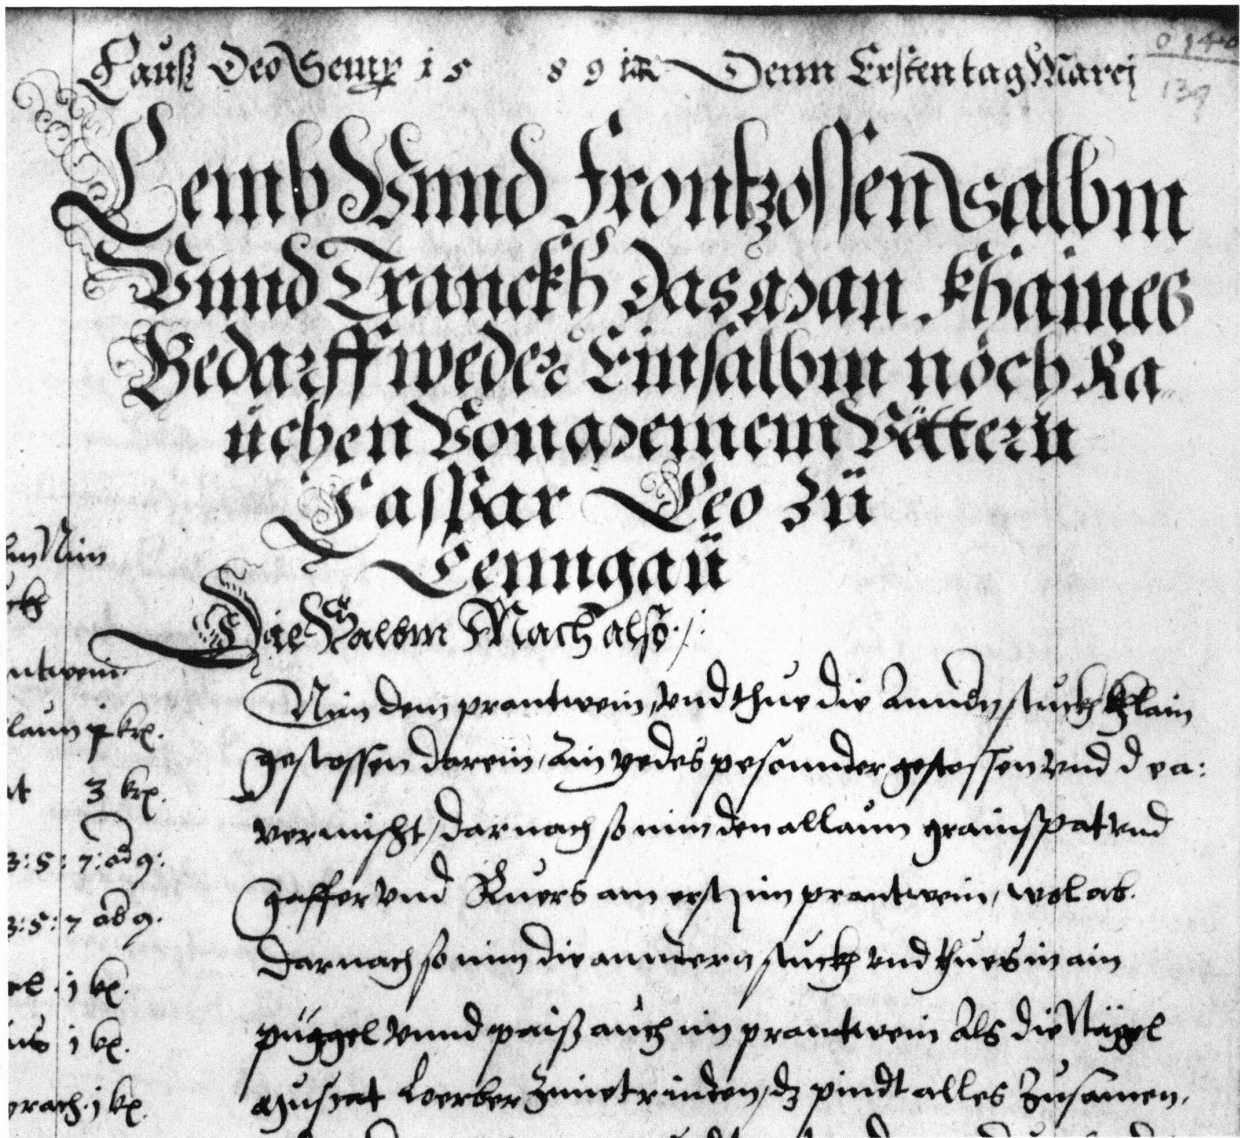 Lauß Deo Semp 15 89 Denn Ersten tag Marci
0140
139
Lemb Vnnd Frontzossen salbm
Vnnd Tranckh das man khaines
Bedarff weder Einsalbm noch Ra
üchen Von meinem Vettern
Caspar Leo zü
Lenngaü
Die Salbm Mach also:/:
Nim dem prantwein, vnd thue die Anndn stuckh khlain
gestossen darein, Ain yedes pesonnder gestossen vnd dra:
vermischt, darnach so nim den allaun grainspat vnd
gaffer vnd Ruers am erst im prantwein, wol ab.
darnach so nim die anndern stuckh vnd thues in ain
püggel vnnd paiß auch im prantwein Als die Nägel
Muscat Loerber Zimetrinden, dz pindt alles zusamen,
Nim
ntwein
laun krx.
at 3 krx.
3:5:7: od 9:
3:5:7 od 9.
el 1 kx.
us 1 kx.
rach. 1 kx.